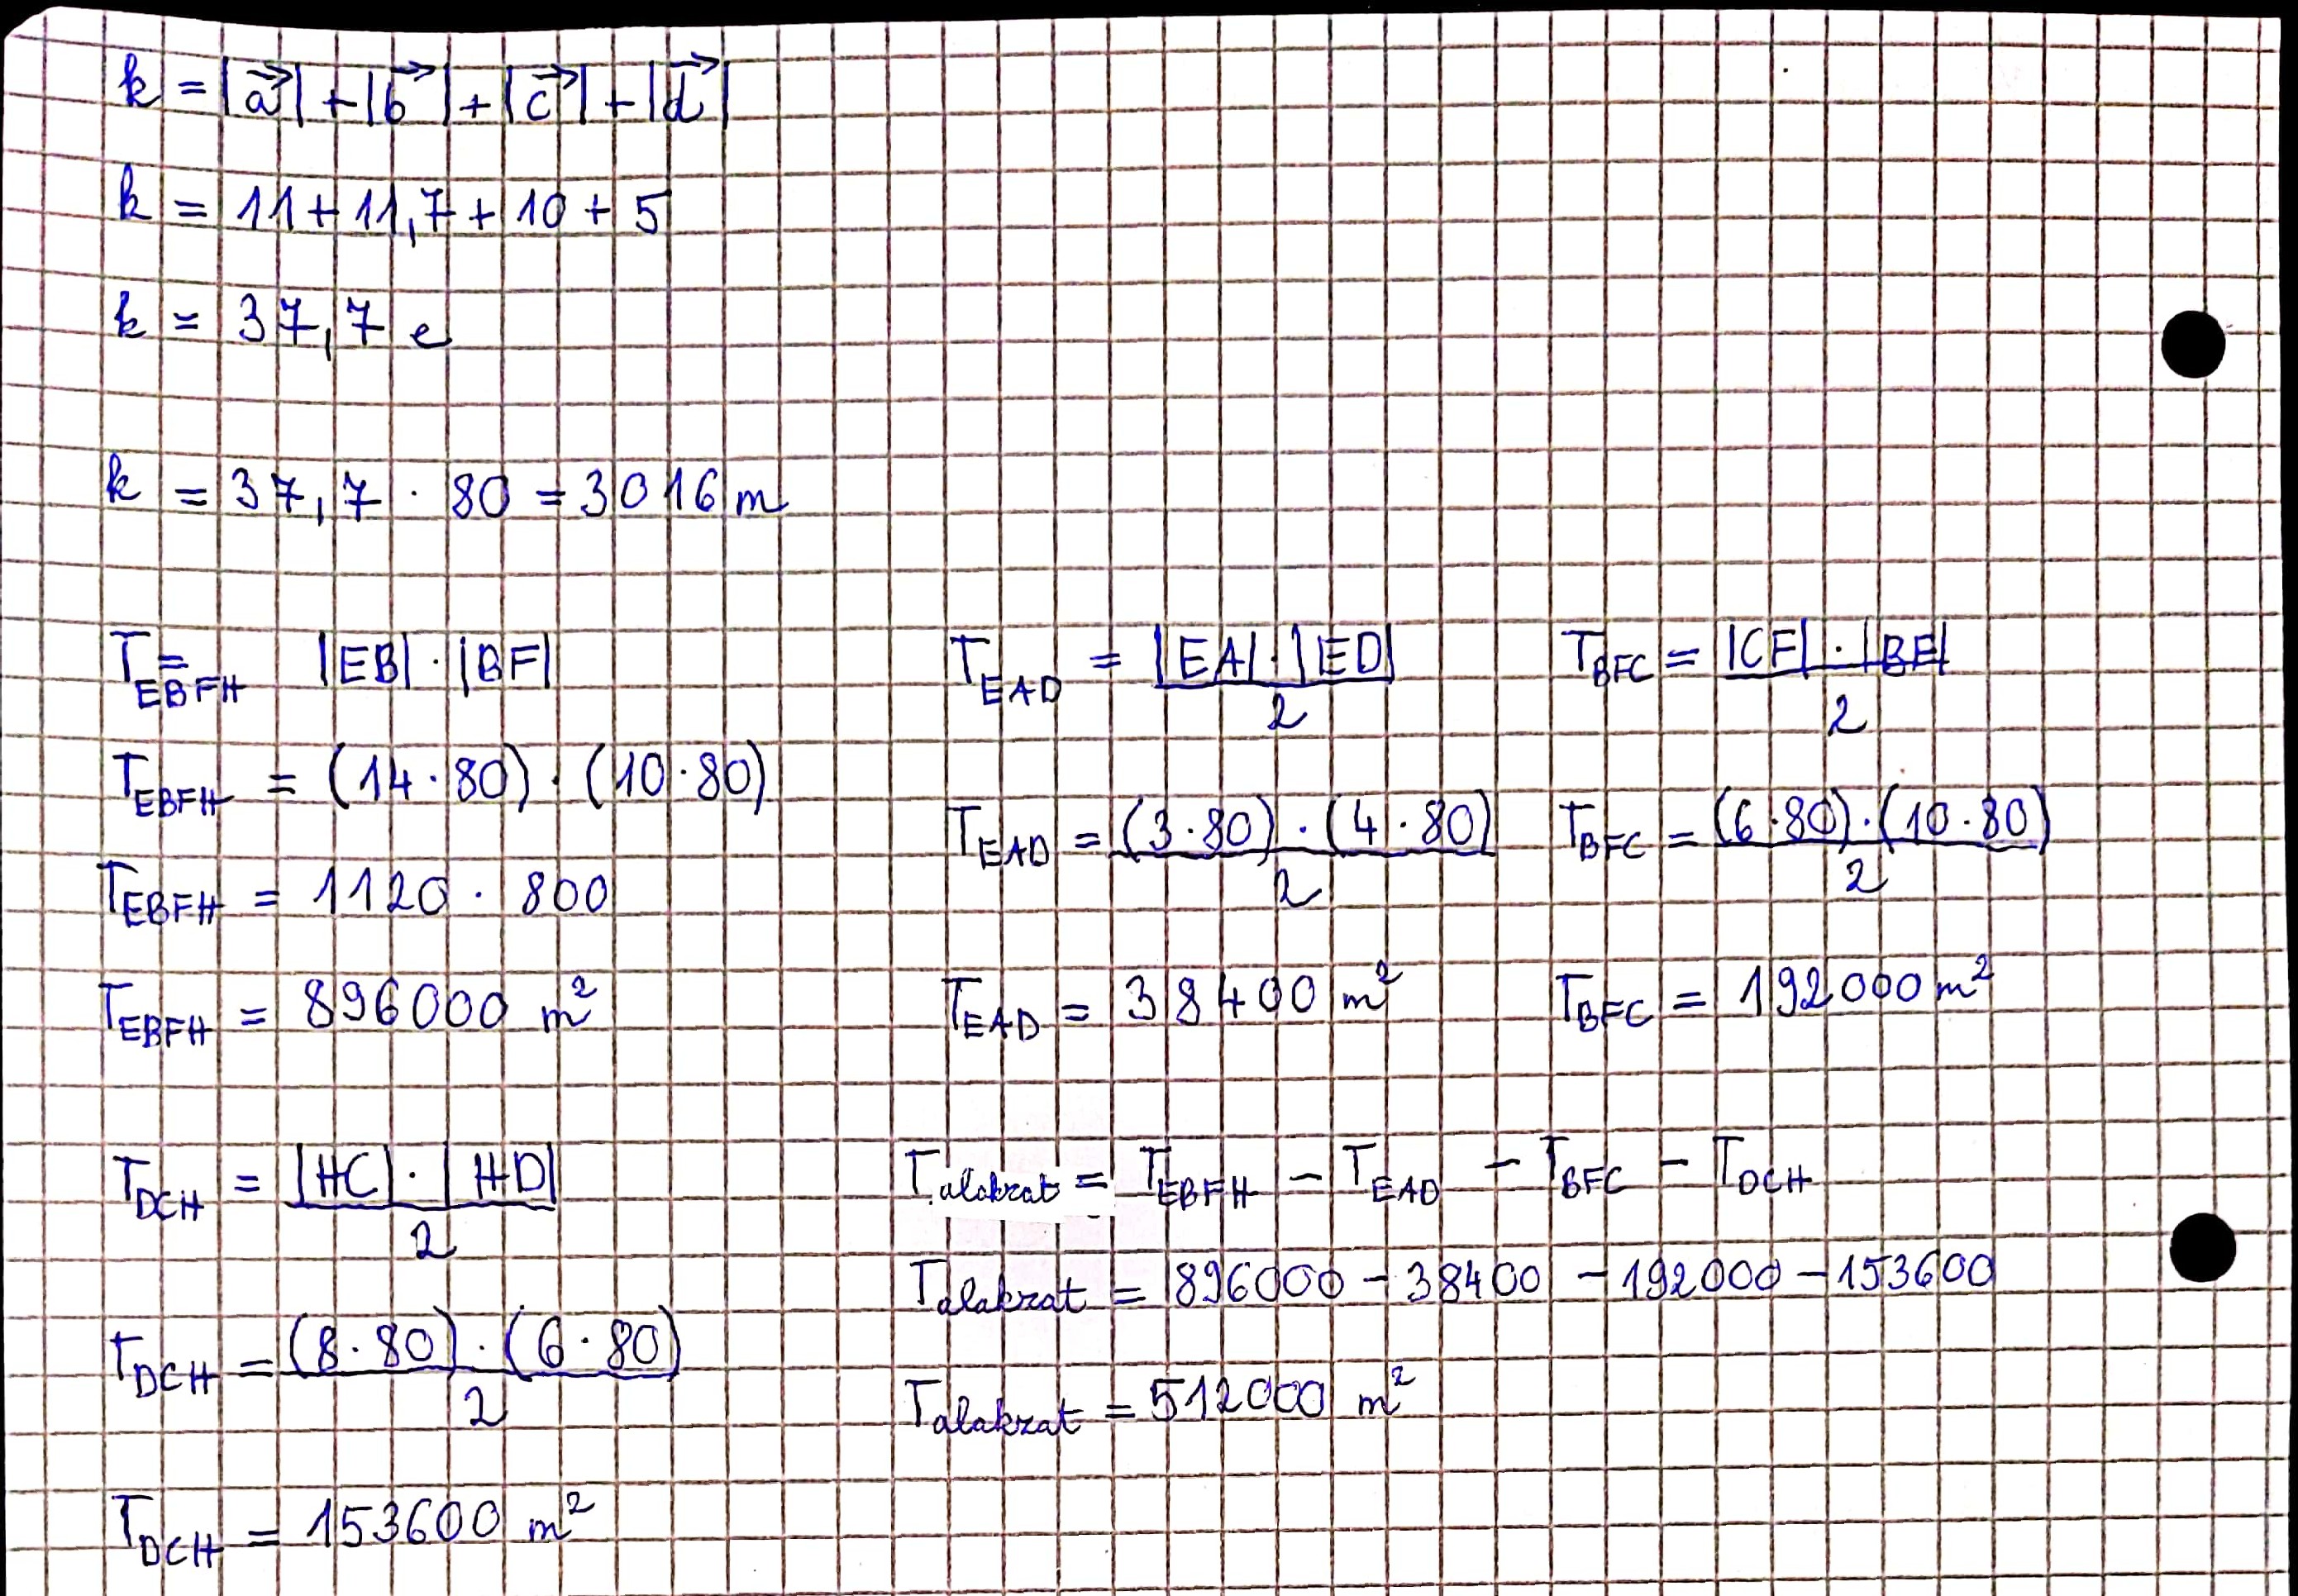 k = |a⃗| + |b⃗| + |c⃗| + |d⃗|
k = 11 + 11,7 + 10 + 5
k = 37,7 e
k = 37,7 · 80 = 3016 m
T_EBFH = |EB| · |BF|
T_EBFH = (14·80) · (10·80)
T_EBFH = 1120 · 800
T_EBFH = 896000 m²
T_EAD = |EA| · |ED| / 2
T_EAD = (3·80) · (4·80) / 2
T_EAD = 38400 m²
T_BFC = |CF| · |BF| / 2
T_BFC = (6·80) · (10·80) / 2
T_BFC = 192000 m²
T_DCH = |HC| · |HD| / 2
T_DCH = (8·80) · (6·80) / 2
T_DCH = 153600 m²
T_alakzat = T_EBFH - T_EAD - T_BFC - T_DCH
T_alakzat = 896000 - 38400 - 192000 - 153600
T_alakzat = 512000 m²